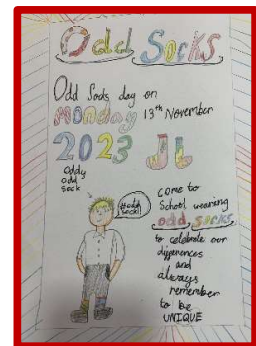 Odd Socks
Odd Socks day on
Monday 13th November
2023
Oddly
odd
sock
#odd
socks!
come to
School wearing
odd socks
to celebrate our
differences
and
always
remember
to be
UNIQUE